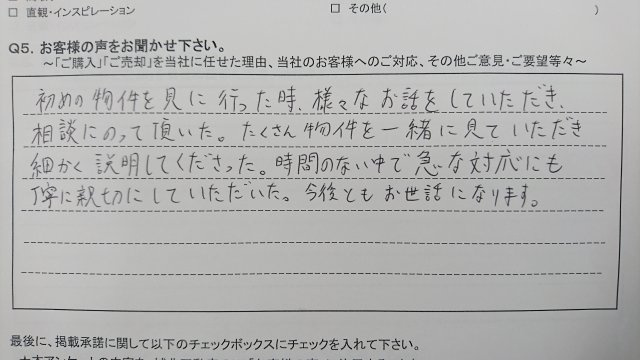 □ 直観・インスピレーション
□ その他(　　　)
Q5. お客様の声をお聞かせ下さい。
～「ご購入」「ご売却」を当社に任せた理由、当社のお客様へのご対応、その他ご意見・ご要望等々～
初めの物件を見に行った時、様々なお話をしていただき、
相談にのって頂いた。たくさん物件を一緒に見ていただき
細かく説明してくださった。時間のない中で急な対応にも
丁寧に親切にしていただいた。今後ともお世話になります。
最後に、掲載承諾に関して以下のチェックボックスにチェックを入れて下さい。